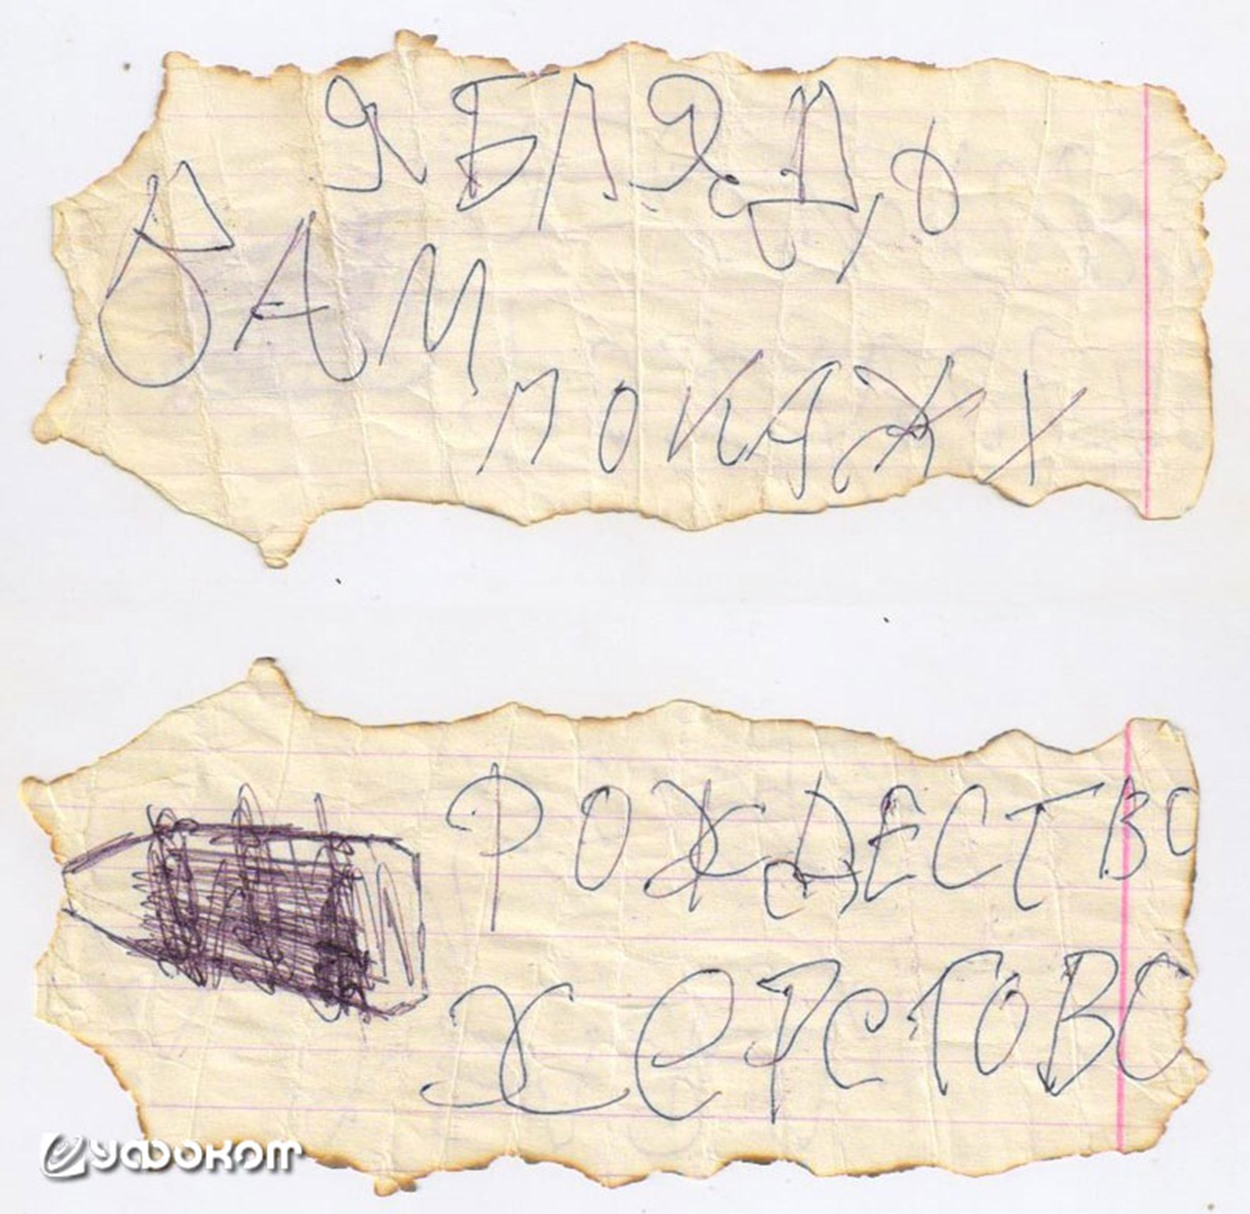 Я БЛЯД,Ь
ВАМ
ПОКАЖУ
РОЖДЕСТВО
ХЕРСТОВО
уфоком